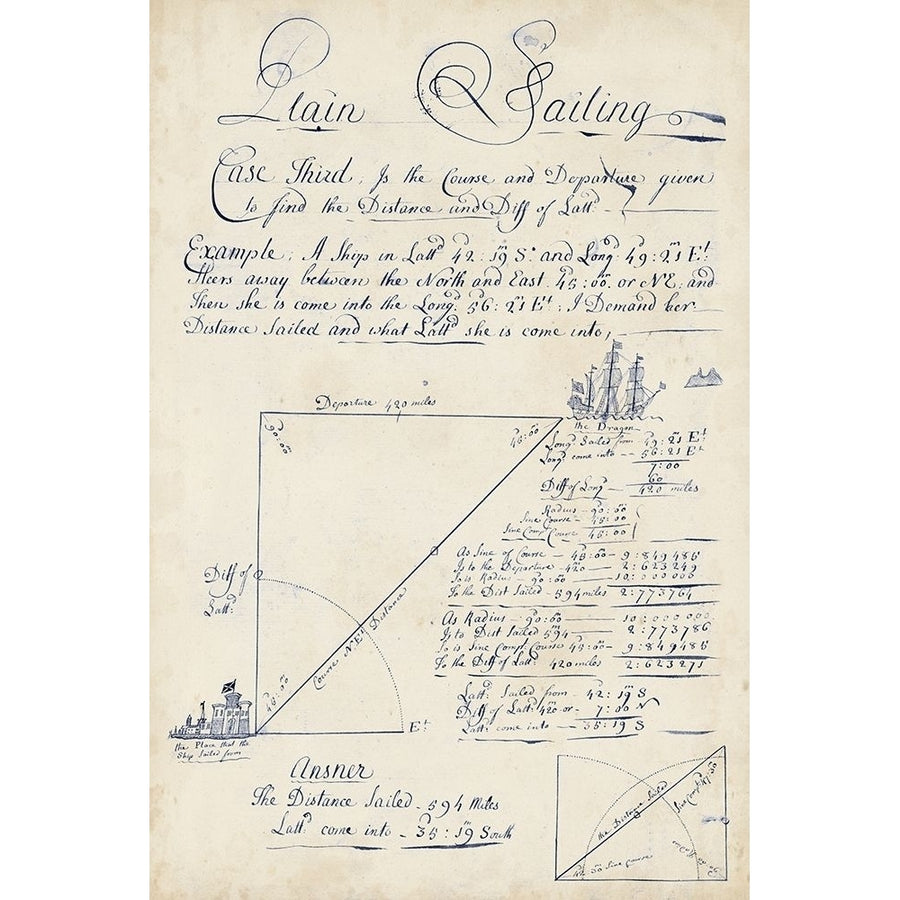 Plain Sailing
Case Third, Is the Course and Departure given
to find the Distance and Diff of Lattd
Example; A Ship in Lattd 42: 19 S. and Long: 49:21 Et
steers away between the North and East 45:00 or NE: and
then she is come into the Long: 56:21 Et: I Demand her
Distance Sailed and what Lattd she is come into,
Departure 420 miles
90:00
45:00
the Dragon
Long: Sailed from 49:21 Et
Long: come into — 56:21 Et
7:00
60
Diff of Long — 420 miles
Radius — 90:00
Sine Course — 45:00
Sine Comp Course 45:00
As Sine of Course — 45:00 — 9:849485
Is to the Departure — 420 — 2:623249
So is Radius — 90:00 — 10:000000
To the Dist Sailed — 594 miles 2:773764
Diff of
Latt:
Course NEt Distance
45:00
Et
As Radius — 90:00 — 10:000000
Is to Dist Sailed 594 — 2:773786
So is Sine Comp: Course 45:00 — 9:849485
To the Diff of Latt: 420 miles 2:623271
Latt: Sailed from — 42: 19 S
Diff of Latt: 420 or — 7:00 N
Latt: come into — 35:19 S
the Place that the
Ship Sailed from
Answer
The Distance Sailed — 594 Miles
Lattd come into — 35:19 South
the Distance Sailed
Sine Course